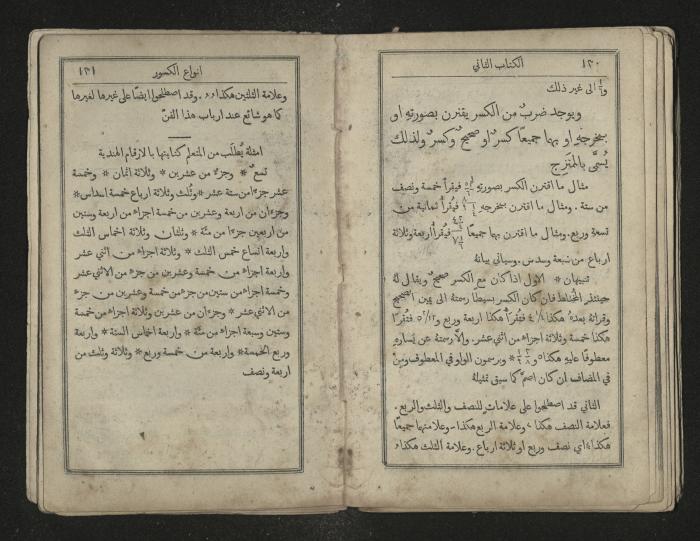 ١٢٠
الكتاب الثاني
الى غير ذلك
ويوجد ضربٌ من الكسر يقترن بصورته او
بمخرجه او بهما جميعًا كسرٌ او صحيحٌ وكسرٌ ولذلك
يُسمَّى بالممتزج
مثال ما اقترن الكسر بصورته فيقرأ خمسة ونصف
من ستة . ومثال ما اقترن بمخرجه فيُقرأ ثمانية من
تسعة وربع . ومثال ما اقترن بهما جميعًا فيقرأ اربعة وثلاثة
ارباع من سبعة وسدس . وسياتي بيانه
تنبيهان * الاول اذا كان مع الكسر صحيحٌ ويقال لهُ
حينئذٍ المختلط فان كان الكسر بسيطًا رسمتهُ الى يمين الصحيح
وقراته بعدهُ هكذا فتُقرأ هكذا اربعة وربع و فتُقرأ
هكذا خمسة وثلاثة اجزاء من اثني عشر . والَّا رسمتهُ عن يساره
معطوفًا عليه هكذا * ويرسمون الواو في المعطوف ومِن
في المضاف ان كان اصمَّ كما سبق تمثيلهُ
الثاني قد اصطلحوا على علاماتٍ للنصف والثلث والربع .
فعلامة النصف هكذا وعلامة الربع هكذا وعلامتهما جميعًا
هكذا اي نصف وربع او ثلاثة ارباع . وعلامة الثلث هكذا
انواع الكسور
١٢١
وعلامة الثلثين هكذا . وقد اصطلحوا ايضًا على غيرها لغيرها
كما هو شائع عند ارباب هذا الفنّ
امثلة يُطلَب من المتعلم كتابتها بالارقام الهندية
تسعٌ * وجزءٌ من عشرين * وثلاثة اثمان * وخمسة
عشر جزءًا من ستة عشر * وثُلث وثلاثة ارباع خمسة اسداس *
وجزءان من اربعة وعشرين من خمسة اجزاء من اربعة وستين
من اربعين جزءًا من مئة * وثلثان وثلاثة اخماس الثلث
واربعة اتساع خمس الثلث * وثلاثة اجزاء من اثني عشر
واربعة اجزاء من خمسة وعشرين من جزء من الاثني عشر
وخمسة اجزاء من ستين من جزء من خمسة وعشرين من جزء
من الاثني عشر * وجزءان من عشرين وثلاثة اجزاء من خمسة
وستين وسبعة اجزاء من مئة * واربعة اخماس الستة * واربعة
وربع الخمسة * واربعة من خمسة وربع * وثلاثة وثلث من
اربعة ونصف